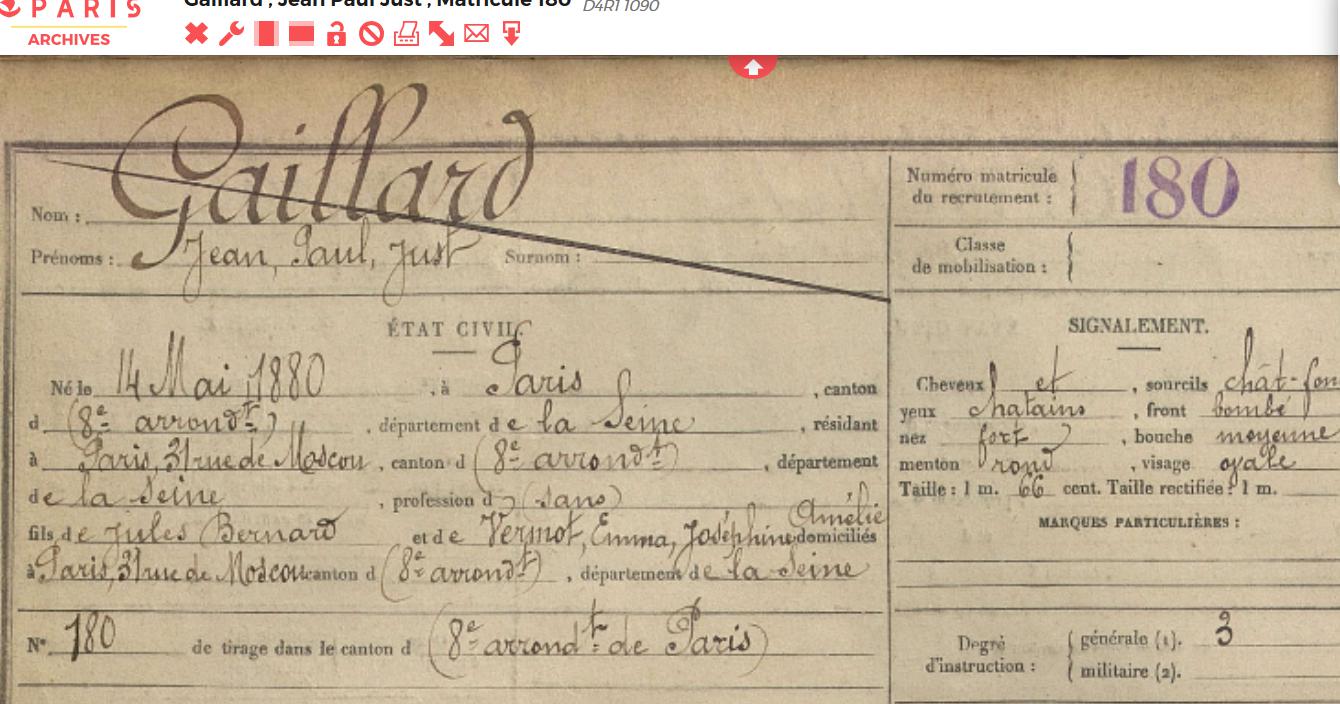 PARIS
ARCHIVES
Gaillard , Jean Paul Just , Matricule 180 D4R1 1090
Nom : Gaillard
Prénoms : Jean, Paul, Just Surnom :
Numéro matricule du recrutement : 180
Classe de mobilisation :
ÉTAT CIVIL.
Né le 14 Mai 1880 , à Paris , canton
d (8e arrondt) , département de la Seine , résidant
à Paris, 31 rue de Moscou , canton d (8e arrondt) , département
de la Seine , profession d (sans)
fils de Jules Bernard et de Vermot, Emma, Joséphine Amélie domiciliés
à Paris, 31 rue de Moscou canton d (8e arrondt) , département de la Seine
N° 180 de tirage dans le canton d (8e arrondt de Paris)
SIGNALEMENT.
Cheveux et , sourcils chât-fon
yeux chatains , front bombé
nez fort , bouche moyenne
menton rond , visage ovale
Taille : 1 m. 66 cent. Taille rectifiée : 1 m.
MARQUES PARTICULIÈRES :
Degré d'instruction : générale (1). 3
militaire (2).